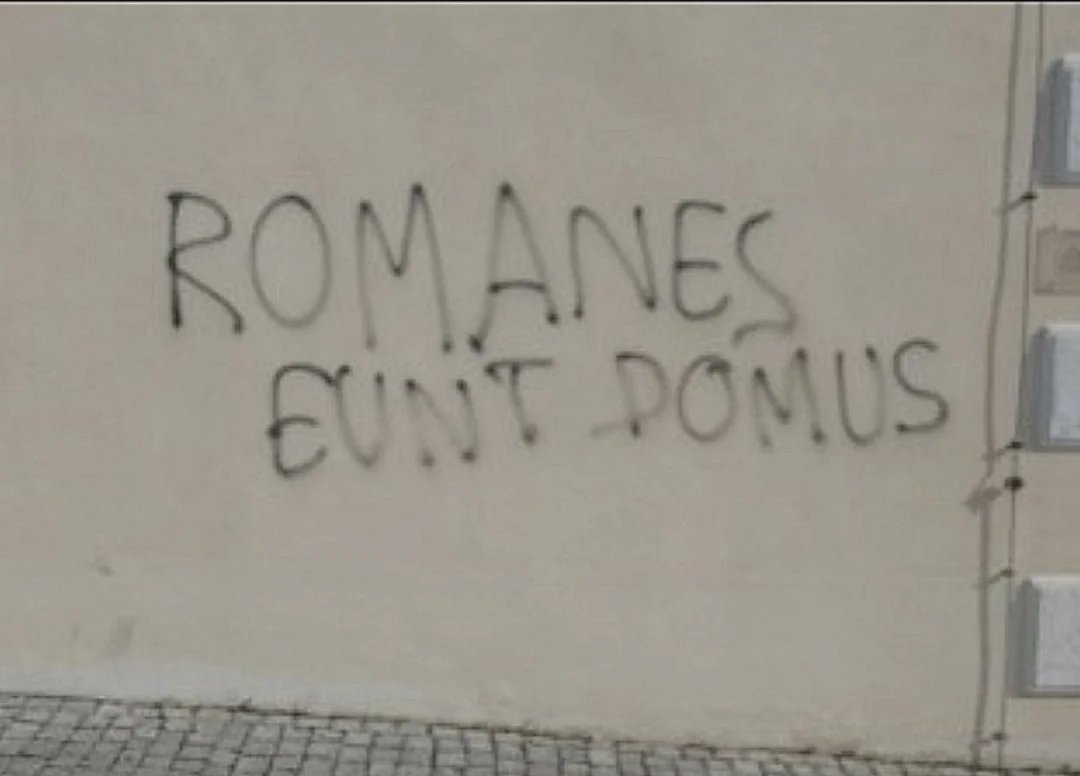 ROMANES
EUNT DOMUS